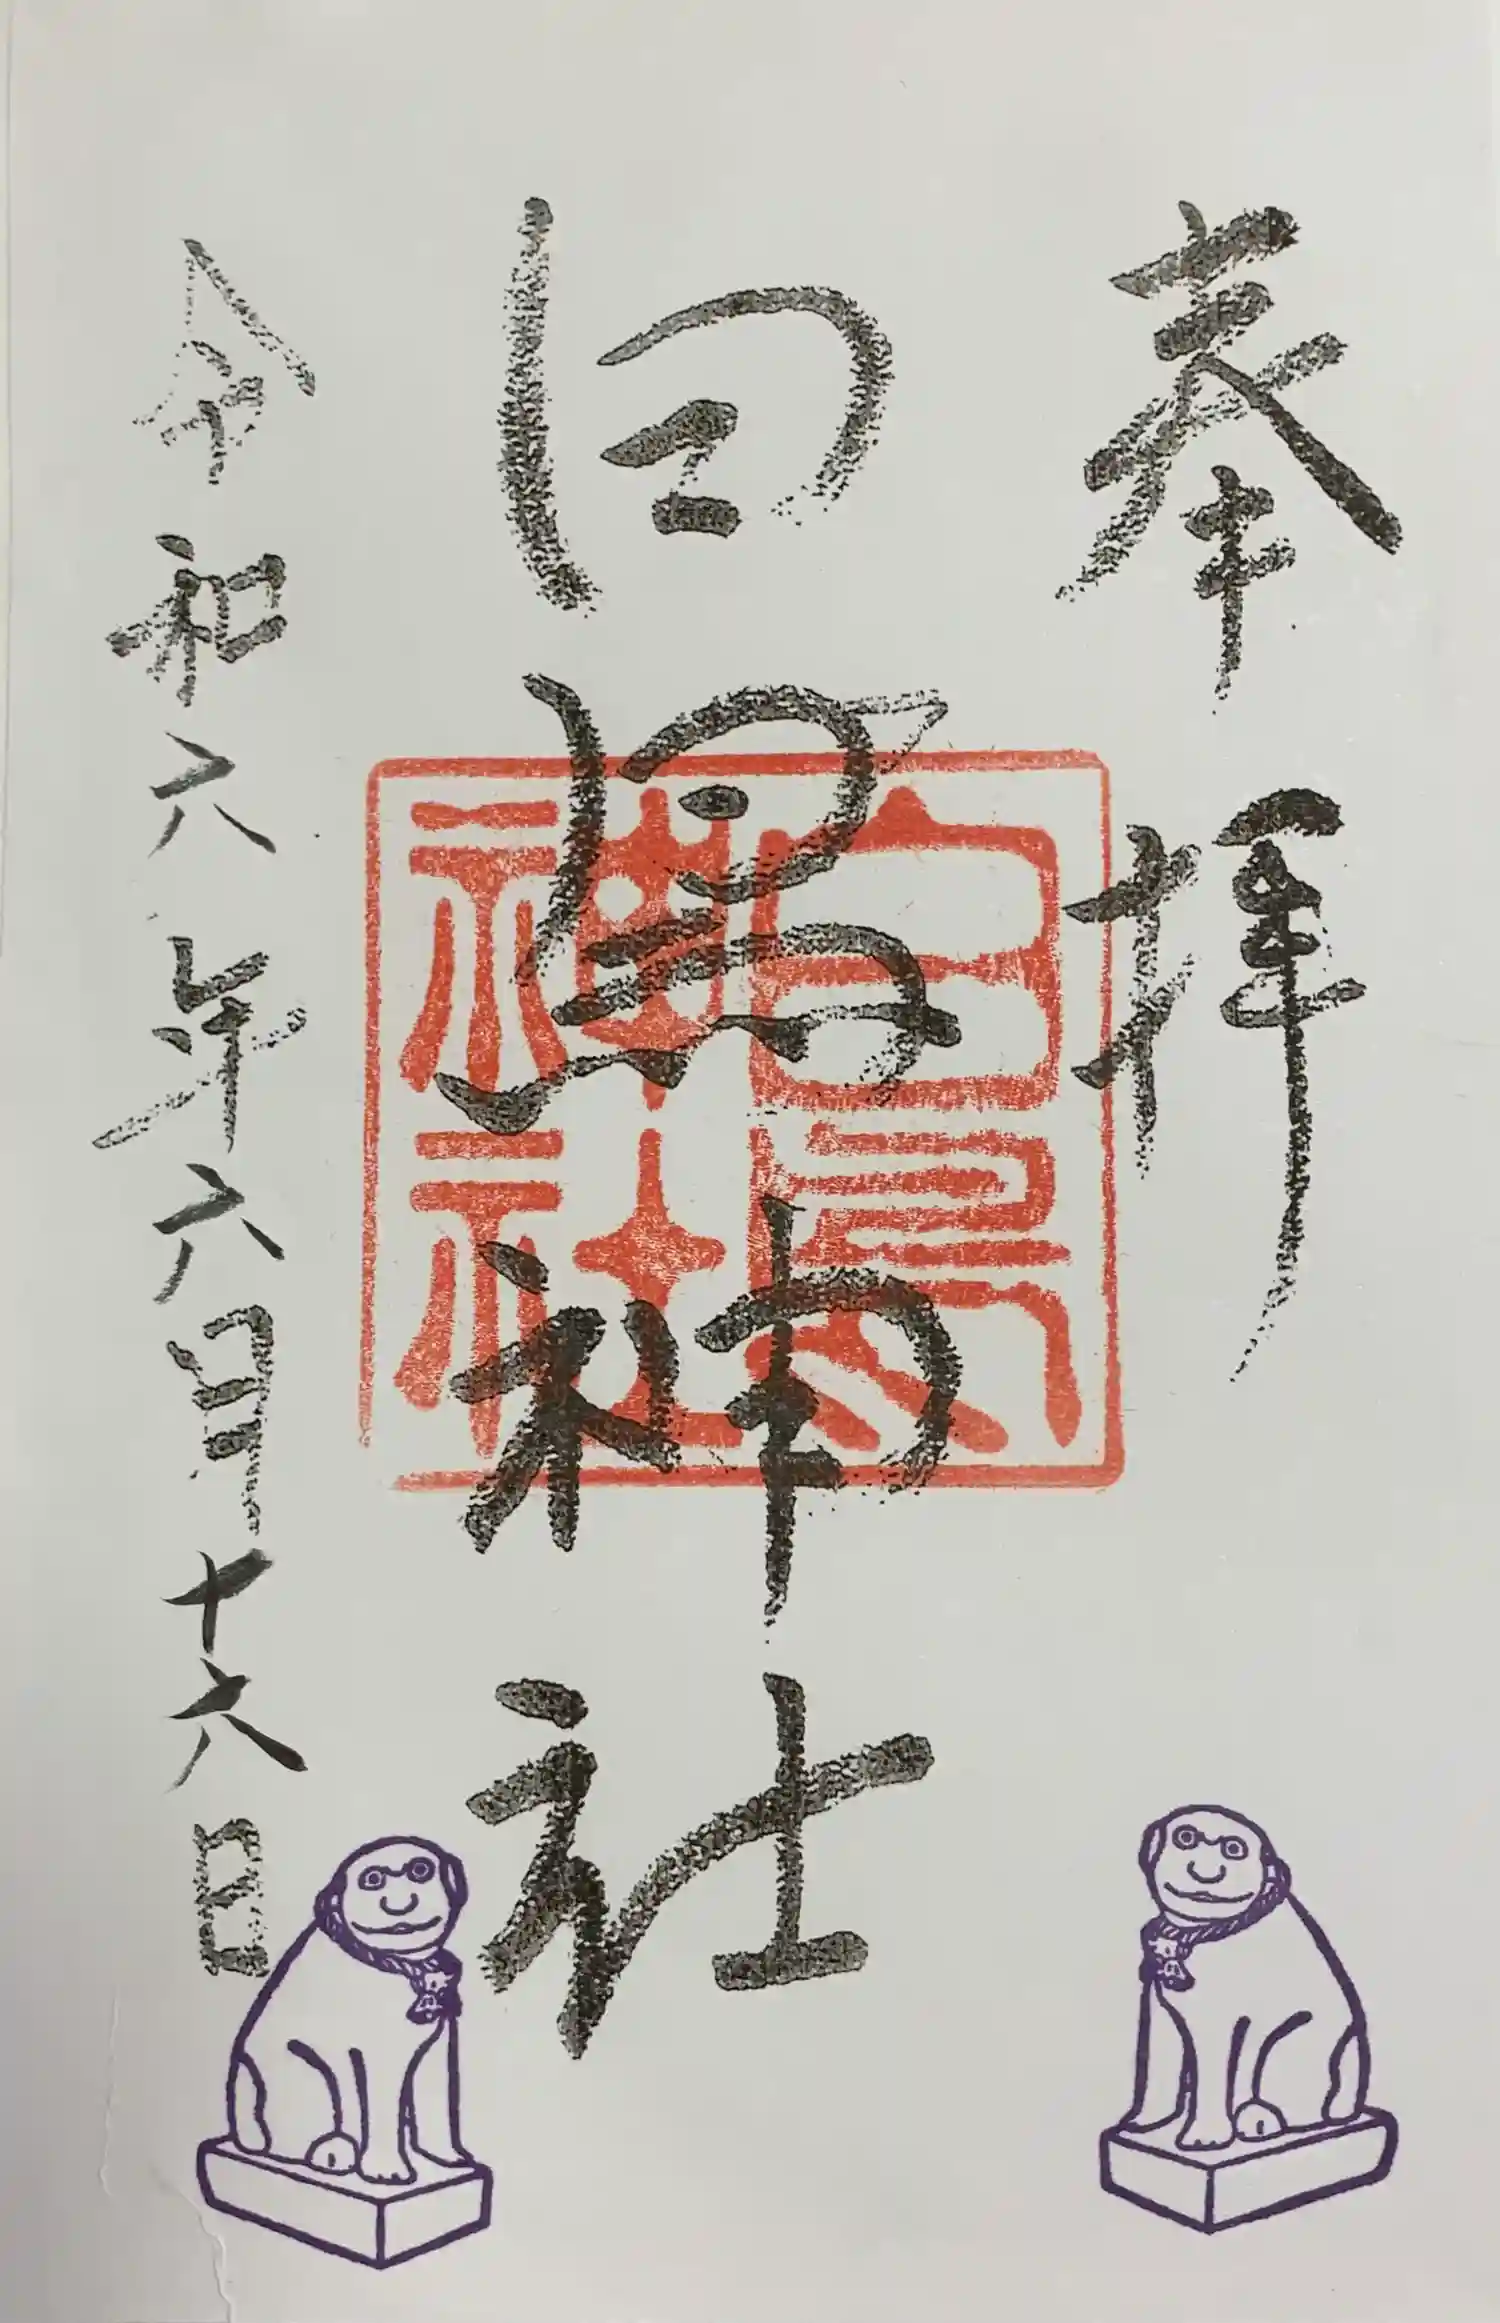 奉拝
白鳥神社
白鳥神社
令和六年六月十六日